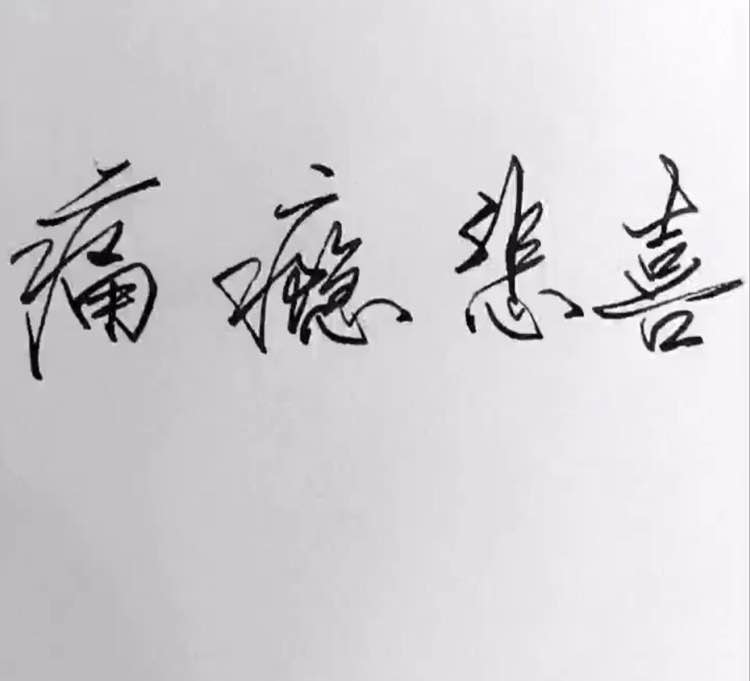 痛瘾悲喜